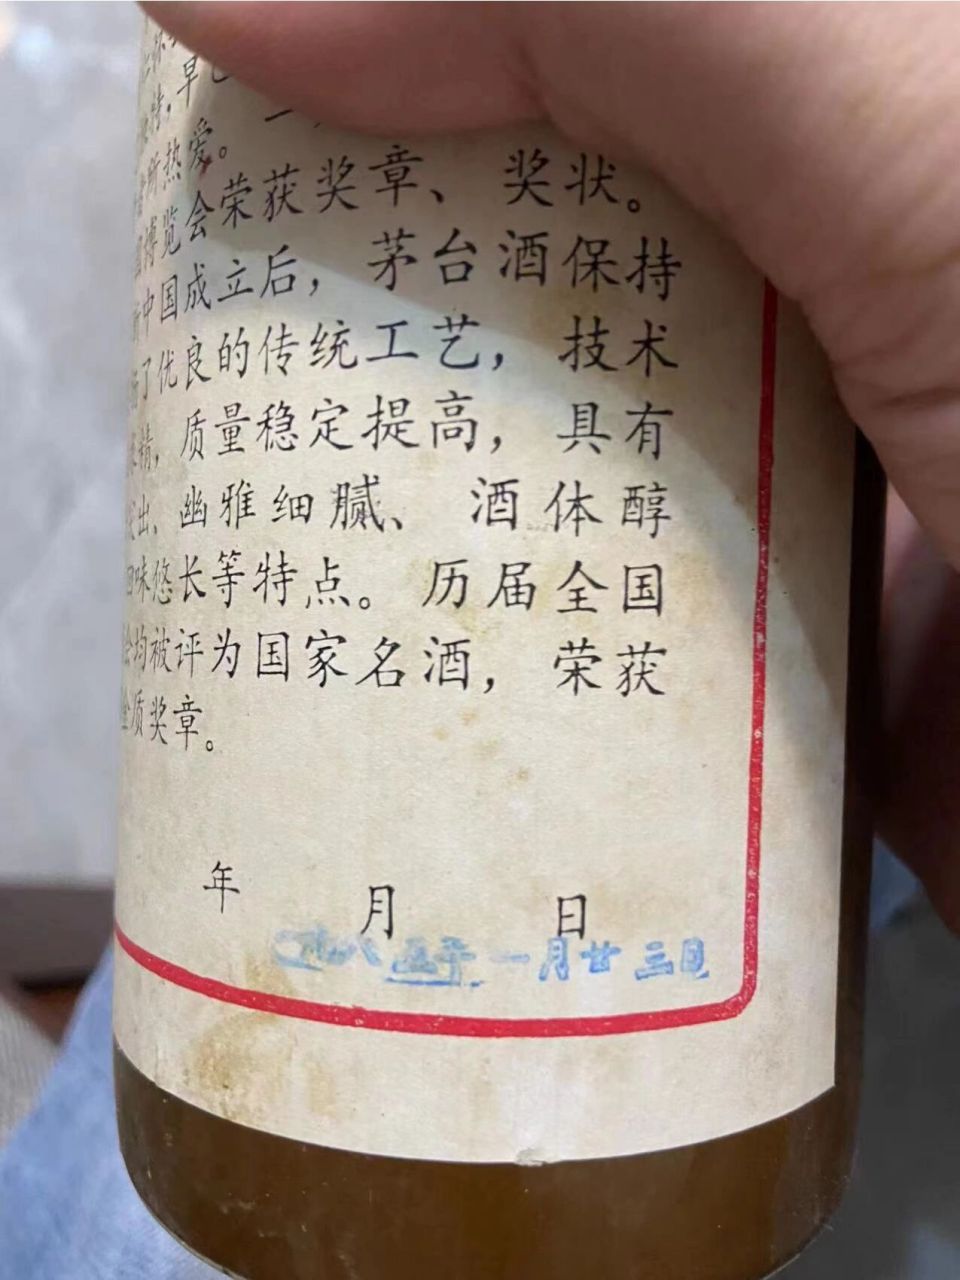 早
所热爱。 一
博览会荣获奖章、奖状。
新中国成立后，茅台酒保持
了优良的传统工艺，技术
精，质量稳定提高，具有
出、幽雅细腻、酒体醇
回味悠长等特点。历届全国
会均被评为国家名酒，荣获
金质奖章。
年 月 日
一九八五年一月廿三日